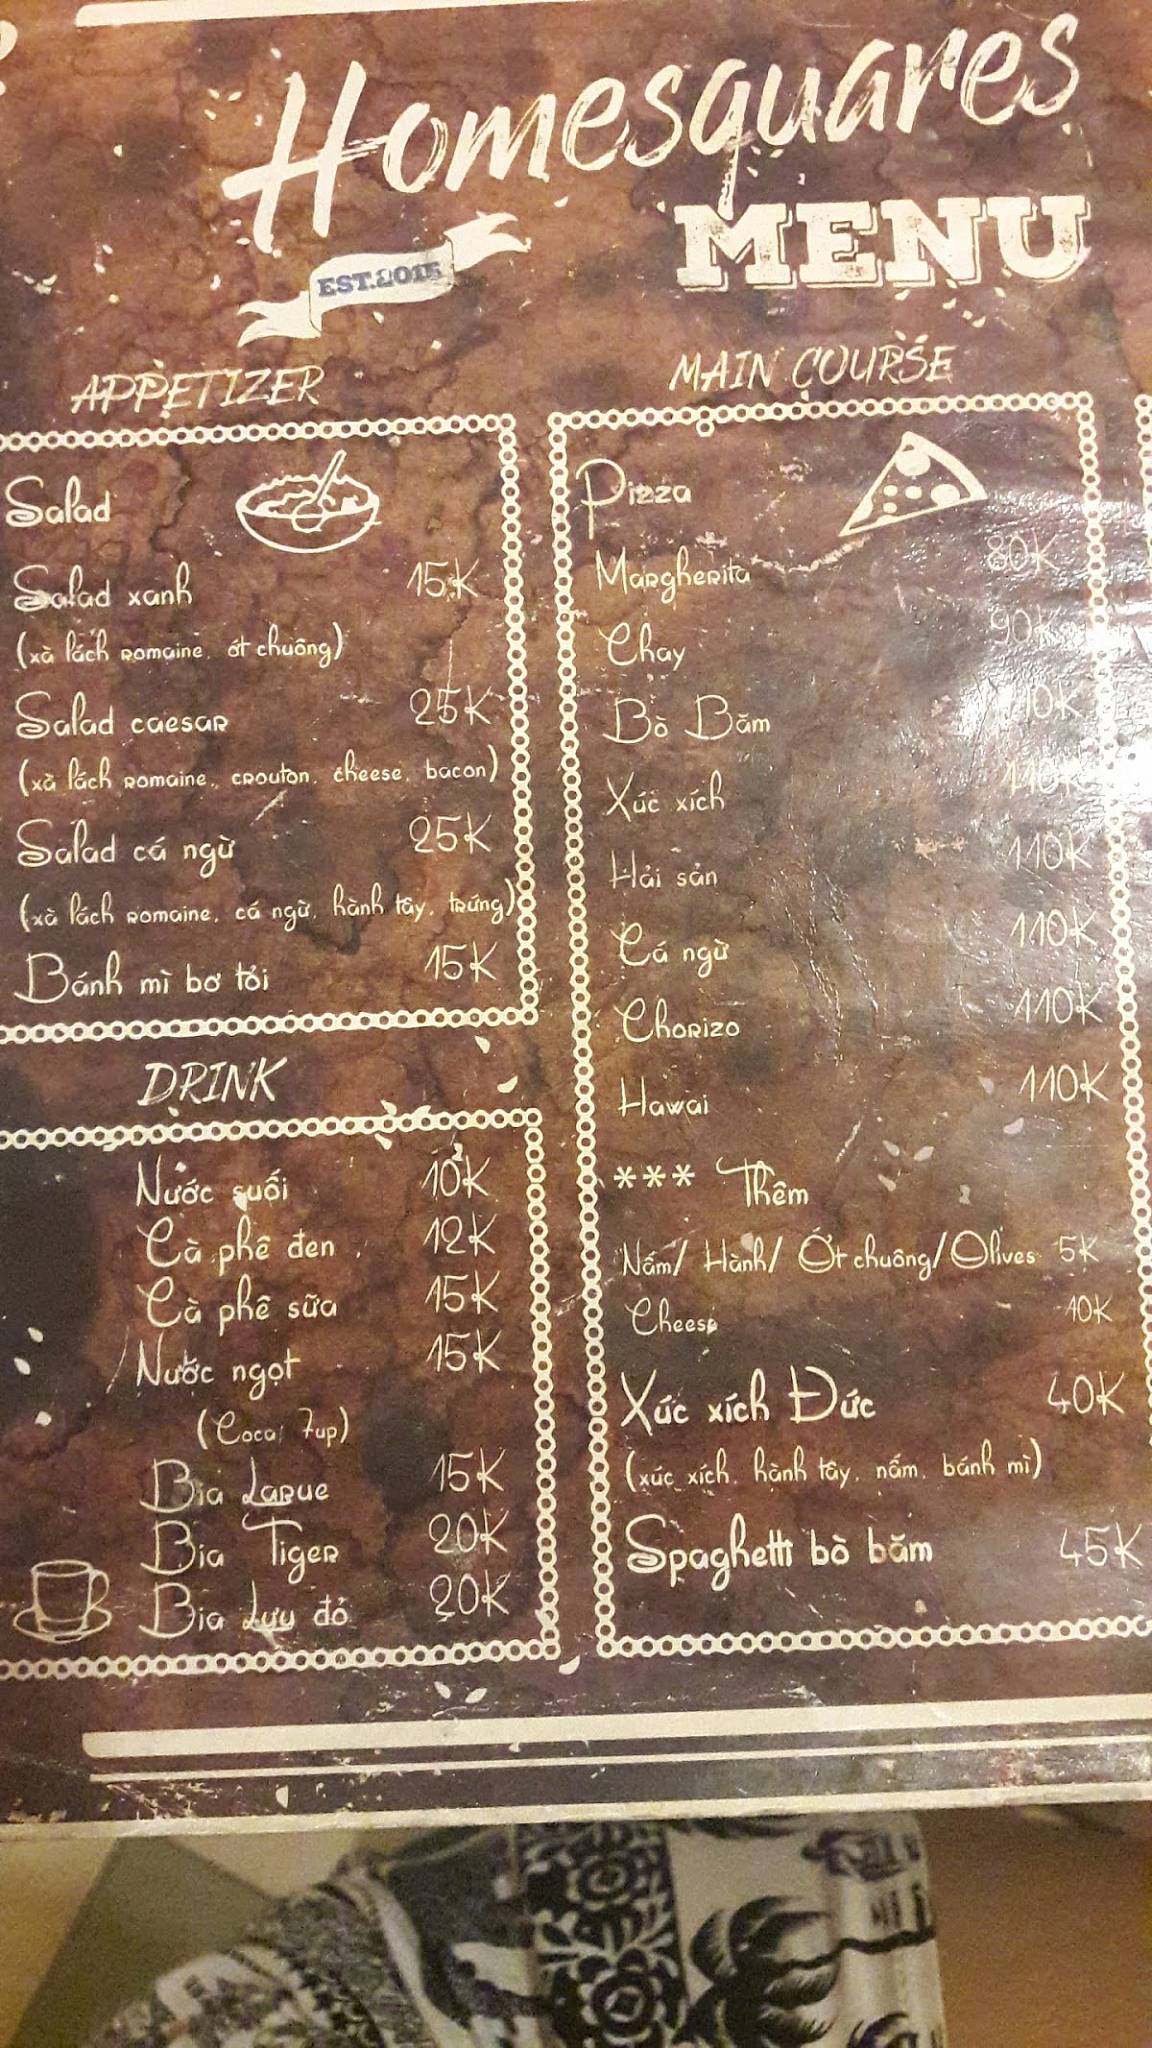 Homesquares
MENU
EST.2015
APPETIZER
Salad
Salad xanh 15K
(xà lách romaine, ớt chuông)
Salad caesar 25K
(xà lách romaine, crouton, cheese, bacon)
Salad cá ngừ 25K
(xà lách romaine, cá ngừ, hành tây, trứng)
Bánh mì bơ tỏi 15K
DRINK
Nước suối 10K
Cà phê đen 12K
Cà phê sữa 15K
Nước ngọt 15K
(Coca, 7up)
Bia Larue 15K
Bia Tiger 20K
Bia Lựu đỏ 20K
MAIN COURSE
Pizza
Margherita 80K
Chay 90K
Bò Băm 110K
Xúc xích 110K
Hải sản 110K
Cá ngừ 110K
Chorizo 110K
Hawai 110K
*** Thêm
Nấm/ Hành/ Ớt chuông/ Olives 5K
Cheese 10K
Xúc xích Đức 40K
(xúc xích, hành tây, nấm, bánh mì)
Spaghetti bò băm 45K